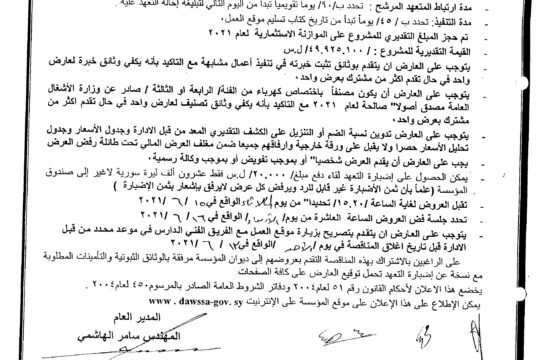 مدة ارتباط المتعهد المرشح : تحدد ب /٩٠/ يوماً تقويمياً تبدأ من اليوم التالي لتبليغه إحالة التعهد عليه .
مدة التنفيذ: تحدد ب / ٤٥/ يوماً تبدأ من تاريخ كتاب تسليم موقع العمل.
تم حجز المبلغ التقديري للمشروع على الموازنة الاستثمارية لعام ٢٠٢١
القيمة التقديرية للمشروع : /٤٩,٩٢٥,١٠٠/ ل.س
يتوجب على العارض ان يتقدم بوثائق تثبت خبرته في تنفيذ أعمال مشابهة مع التاكيد بأنه يكفي وثائق خبرة لعارض
واحد في حال تقدم اكثر من مشترك بعرض واحد.
يتوجب على العارض أن يكون مصنفاً باختصاص كهرباء من الفئة/ الرابعة او الثالثة / صادر عن وزارة الأشغال
العامة مصدق أصولا" صالحة لعام ٢٠٢١ مع التاكيد بأنه يكفي وثائق تصنيف لعارض واحد في حال تقدم اكثر من
مشترك بعرض واحد.
يتوجب على العارض تدوين نسبة الضم أو التنزيل على الكشف التقديري المعد من قبل الادارة وجدول الأسعار وجدول
تحليل الأسعار حصرا ولا يقبل على ورقة خارجية وارفاقهم جميعا ضمن مغلف العرض المالي تحت طائلة رفض العرض
يجب على العارض ان يقدم العرض شخصيا" أو بموجب تفويض أو بموجب وكالة رسمية.
يمكن الحصول على إضبارة التعهد لقاء دفع مبلغ/ ٢٠,٠٠٠/ ل.س فقط عشرون ألف ليرة سورية لاغير إلى صندوق
المؤسسة (علماً بأن ثمن الأضبارة غير قابل للرد ويرفض كل عرض لايرفق بإشعار يثمن الإضبارة )
تقبل العروض لغاية الساعة /١٥,٢٠/ تحديدا" من يوم/ الواقع في / ٦ / ٢٠٢١
تحدد جلسة فض العروض الساعة العاشرة من يوم/ الواقع في / ٦ / ٢٠٢١
يتوجب على العارض ان يتقدم بتصريح بزيارة موقع العمل مع الفريق الفني الدارس في موعد محدد من قبل
الادارة قبل تاريخ اغلاق المناقصة في يوم / الواقع في / ٦ / ٢٠٢١
على الراغبين بالاشتراك بهذه المناقصة التقدم بعروضهم إلى ديوان المؤسسة مرفقة بالوثائق الثبوتية والتأمينات المطلوبة
مع نسخة عن إضبارة التعهد تحمل توقيع العارض على كافة الصفحات
يخضع هذا الاعلان لأحكام القانون رقم ٥١ لعام٢٠٠٤ ودفاتر الشروط العامة الصادر بالمرسوم ٤٥٠ لعام٢٠٠٤.
يمكن الإطلاع على هذا الإعلان على موقع المؤسسة على الإنترنيت www . dawssa-gov. sy
المدير العام
المهندس سامر الهاشمي